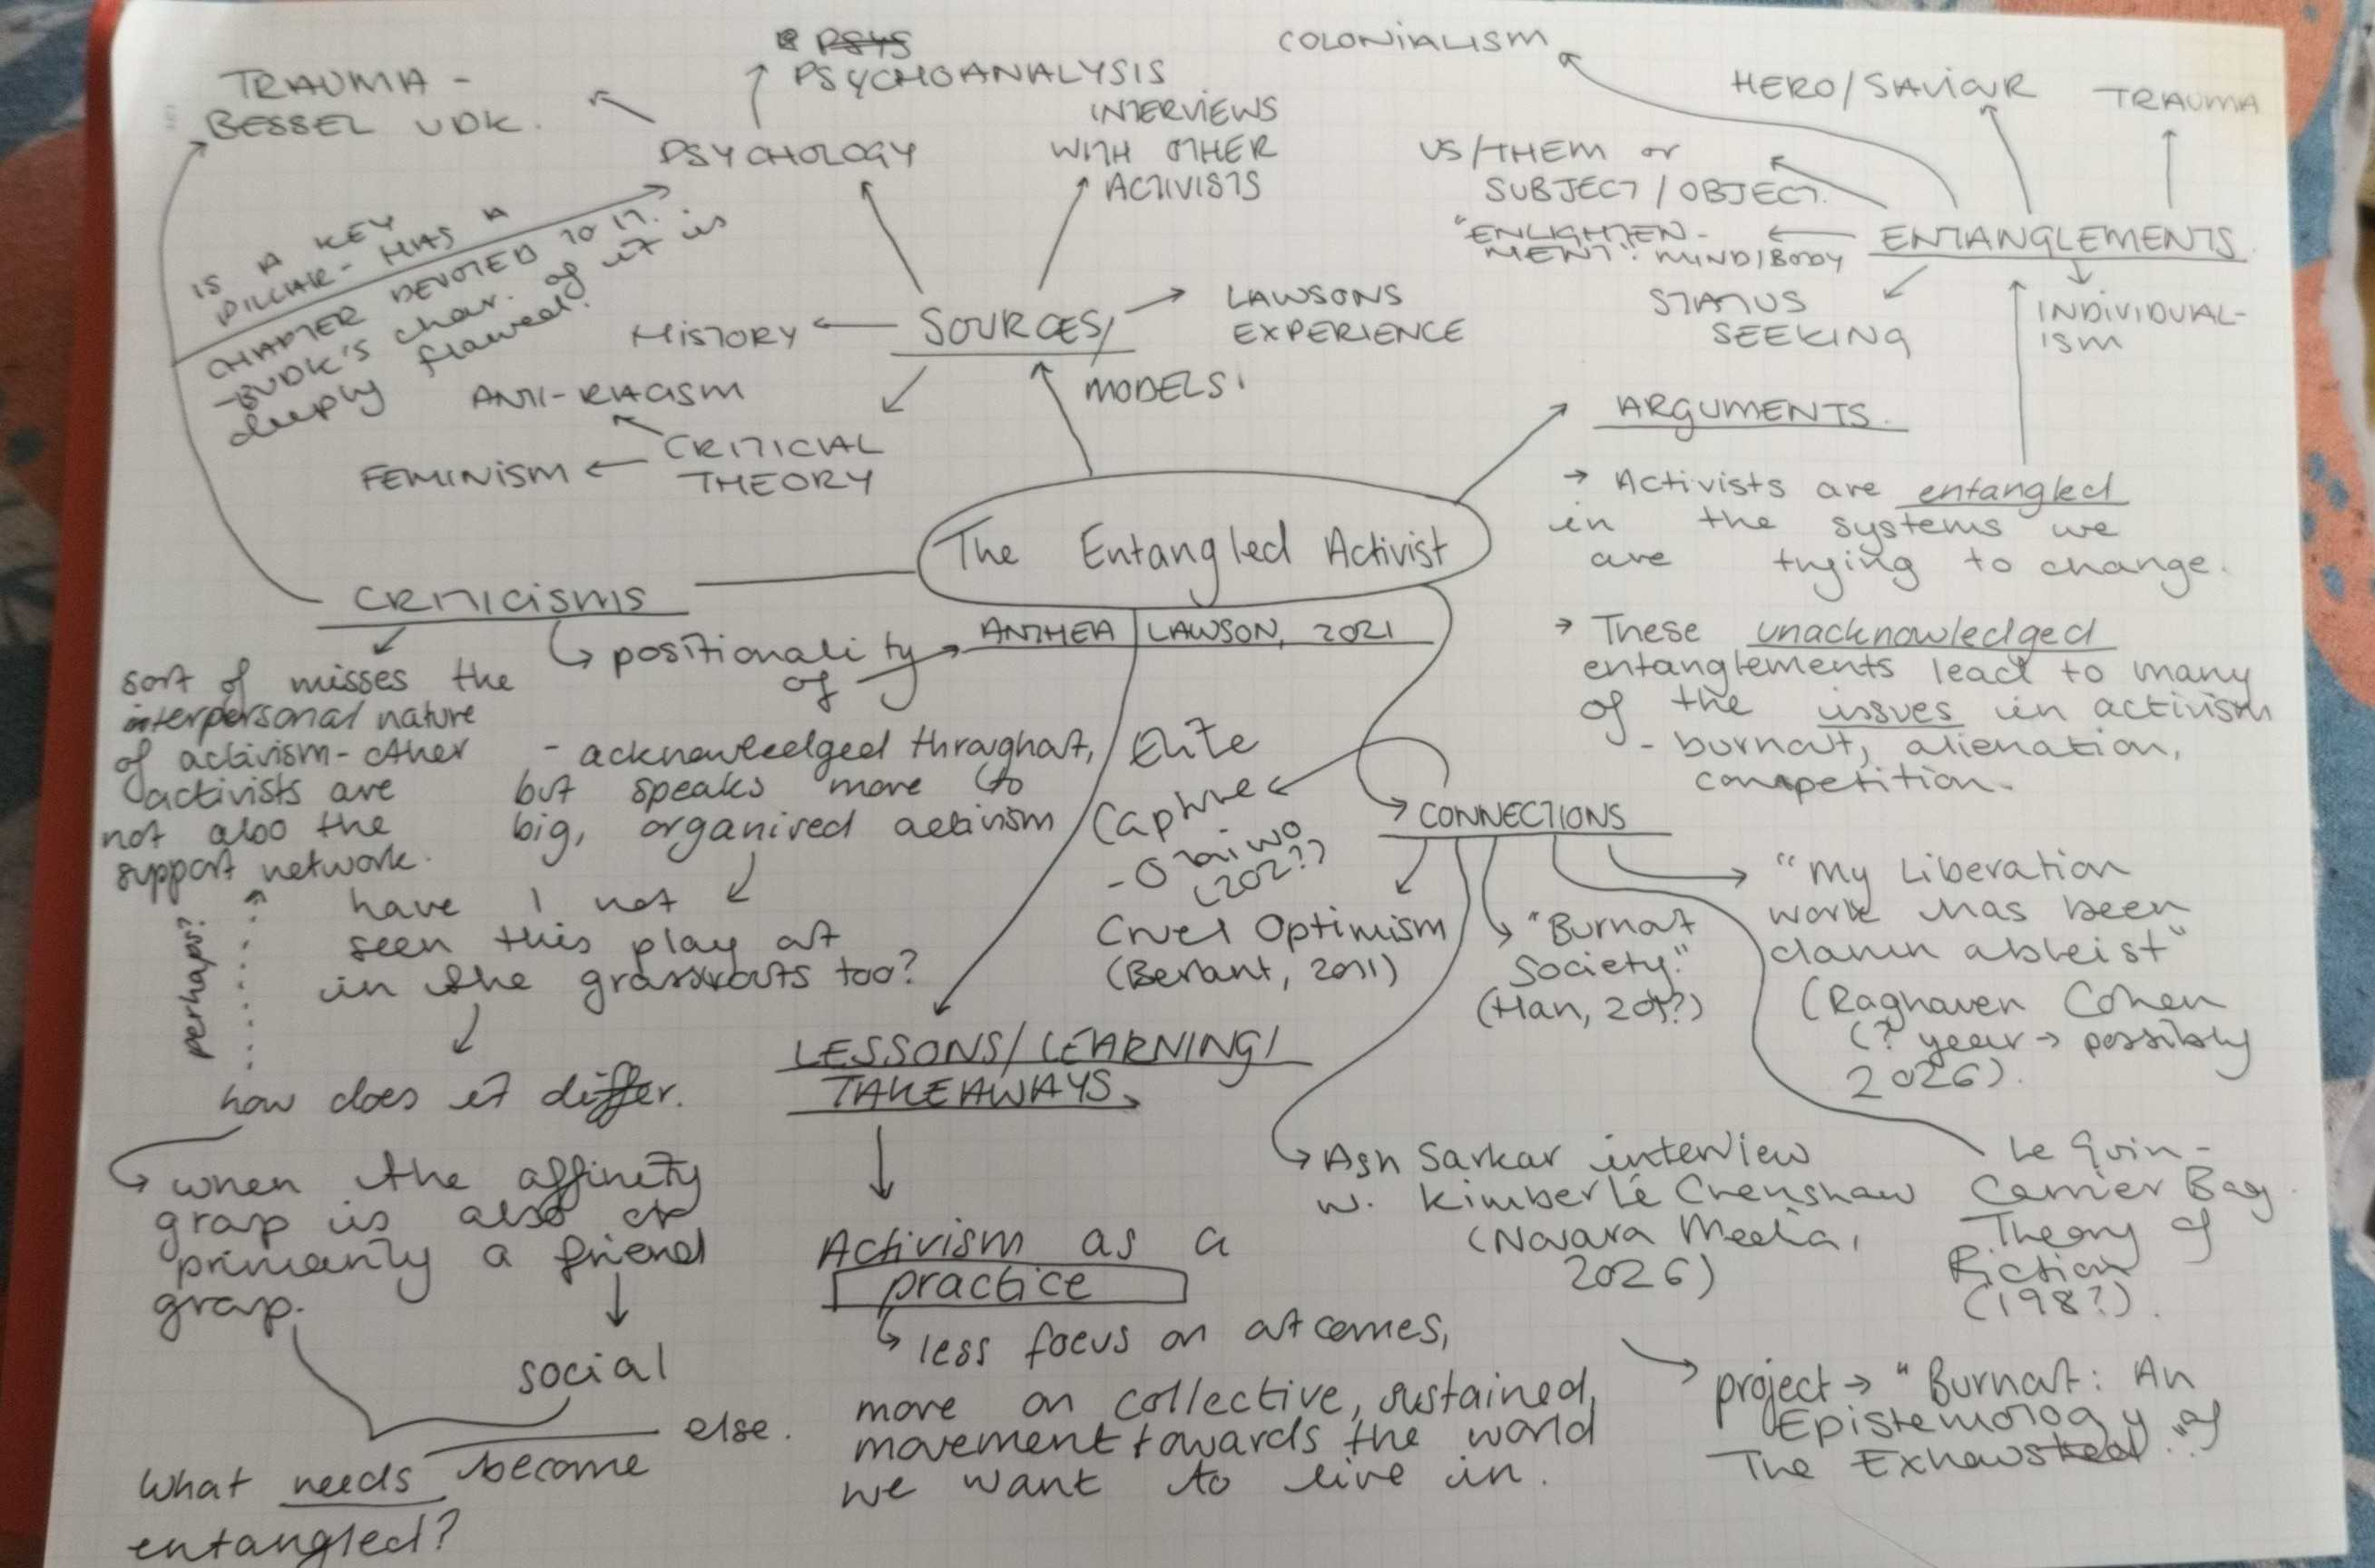 The Entangled Activist
ANTHEA LAWSON, 2021
SOURCES/
MODELS
PSYCHOLOGY
PSYCHOANALYSIS
TRAUMA -
BESSEL VDK.
INTERVIEWS
WITH OTHER
ACTIVISTS
LAWSONS
EXPERIENCE
HISTORY
CRITICIAL
THEORY
ANTI-RACISM
FEMINISM
IS A KEY
PILLAR - HAS A
CHAPTER DEVOTED TO IT.
- BVDK's char. of it is
deeply flawed.
ARGUMENTS.
→ Activists are entangled
in the systems we
are trying to change.
→ These unacknowledged
entanglements lead to many
of the issues in activism
- burnout, alienation,
competition.
ENTANGLEMENTS
COLONIALISM
HERO/SAVIOUR
TRAUMA
US/THEM or
SUBJECT/OBJECT.
"ENLIGHTEN-
MENT": MIND/BODY
STATUS
SEEKING
INDIVIDUAL-
ISM
CRITICISMS
sort of misses the
interpersonal nature
of activism - other
activists are
not also the
support network.
positionality
of
- acknowledged throughout,
but speaks more to
big, organised activism
have I not
seen this play out
in the grassroots too?
how does it differ.
perhaps?
when the affinity
group is also or
primarily a friend
group.
social
What needs become else.
entangled?
CONNECTIONS
Elite
Capture
- Táíwò
(202?)
Cruel Optimism
(Berlant, 2011)
"Burnout
Society"
(Han, 201?)
"My Liberation
work has been
damn ableist"
(Raghaven Cohen
(? year → possibly
2026).
Ash Sarkar interview
w. Kimberlé Crenshaw
(Novara Media,
2026)
Le Guin -
Carrier Bag
Theory of
Fiction
(198?).
project → "Burnout: An
Epistemology of
The Exhausted".
LESSONS/LEARNING/
TAKEAWAYS
Activism as a
practice
less focus on outcomes,
more on collective, sustained,
movement towards the world
we want to live in.